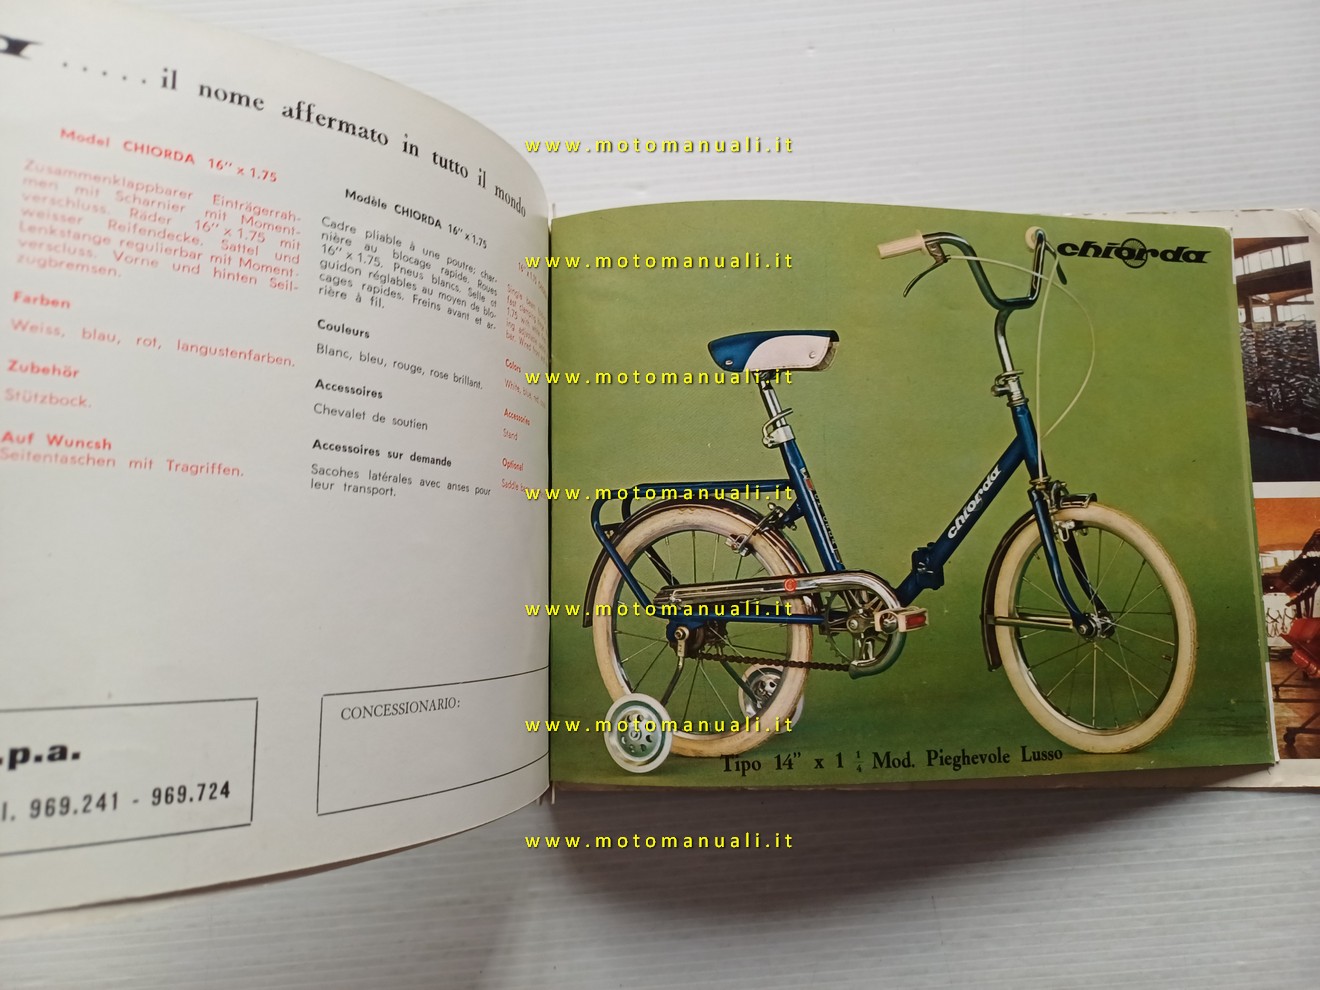 ..... il nome affermato in tutto il mondo
Model CHIORDA 16" x 1.75
Zusammenklappbarer Einträgerrah-
men mit Scharnier mit Moment-
verschluss. Räder 16" x 1.75 mit
weisser Reifendecke. Sattel und
Lenkstange regulierbar mit Moment-
verscluss. Vorne und hinten Seil-
zugbremsen.
Farben
Weiss, blau, rot, langustenfarben.
Zubehör
Stützbock.
Auf Wuncsh
Seitentaschen mit Tragriffen.
Modèle CHIORDA 16" x 1.75
Cadre pliable à une poutre; char-
nière au blocage rapide. Roues
16" x 1.75. Pneus blancs. Selle et
guidon réglables au moyen de blo-
cages rapides. Freins avant et ar-
rière à fil.
Couleurs
Blanc, bleu, rouge, rose brillant.
Accessoires
Chevalet de soutien
Accessoires sur demande
Sacohes latérales avec anses pour
leur transport.
Colors
White, blue, red,
Accessories
Stand
Optional
Saddle
.p.a.
l. 969.241 - 969.724
CONCESSIONARIO:
chiorda
chiorda
Tipo 14" x 1 1/4 Mod. Pieghevole Lusso
www.motomanuali.it
www.motomanuali.it
www.motomanuali.it
www.motomanuali.it
www.motomanuali.it
www.motomanuali.it
www.motomanuali.it